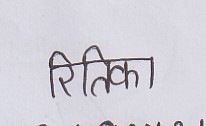 रितिका